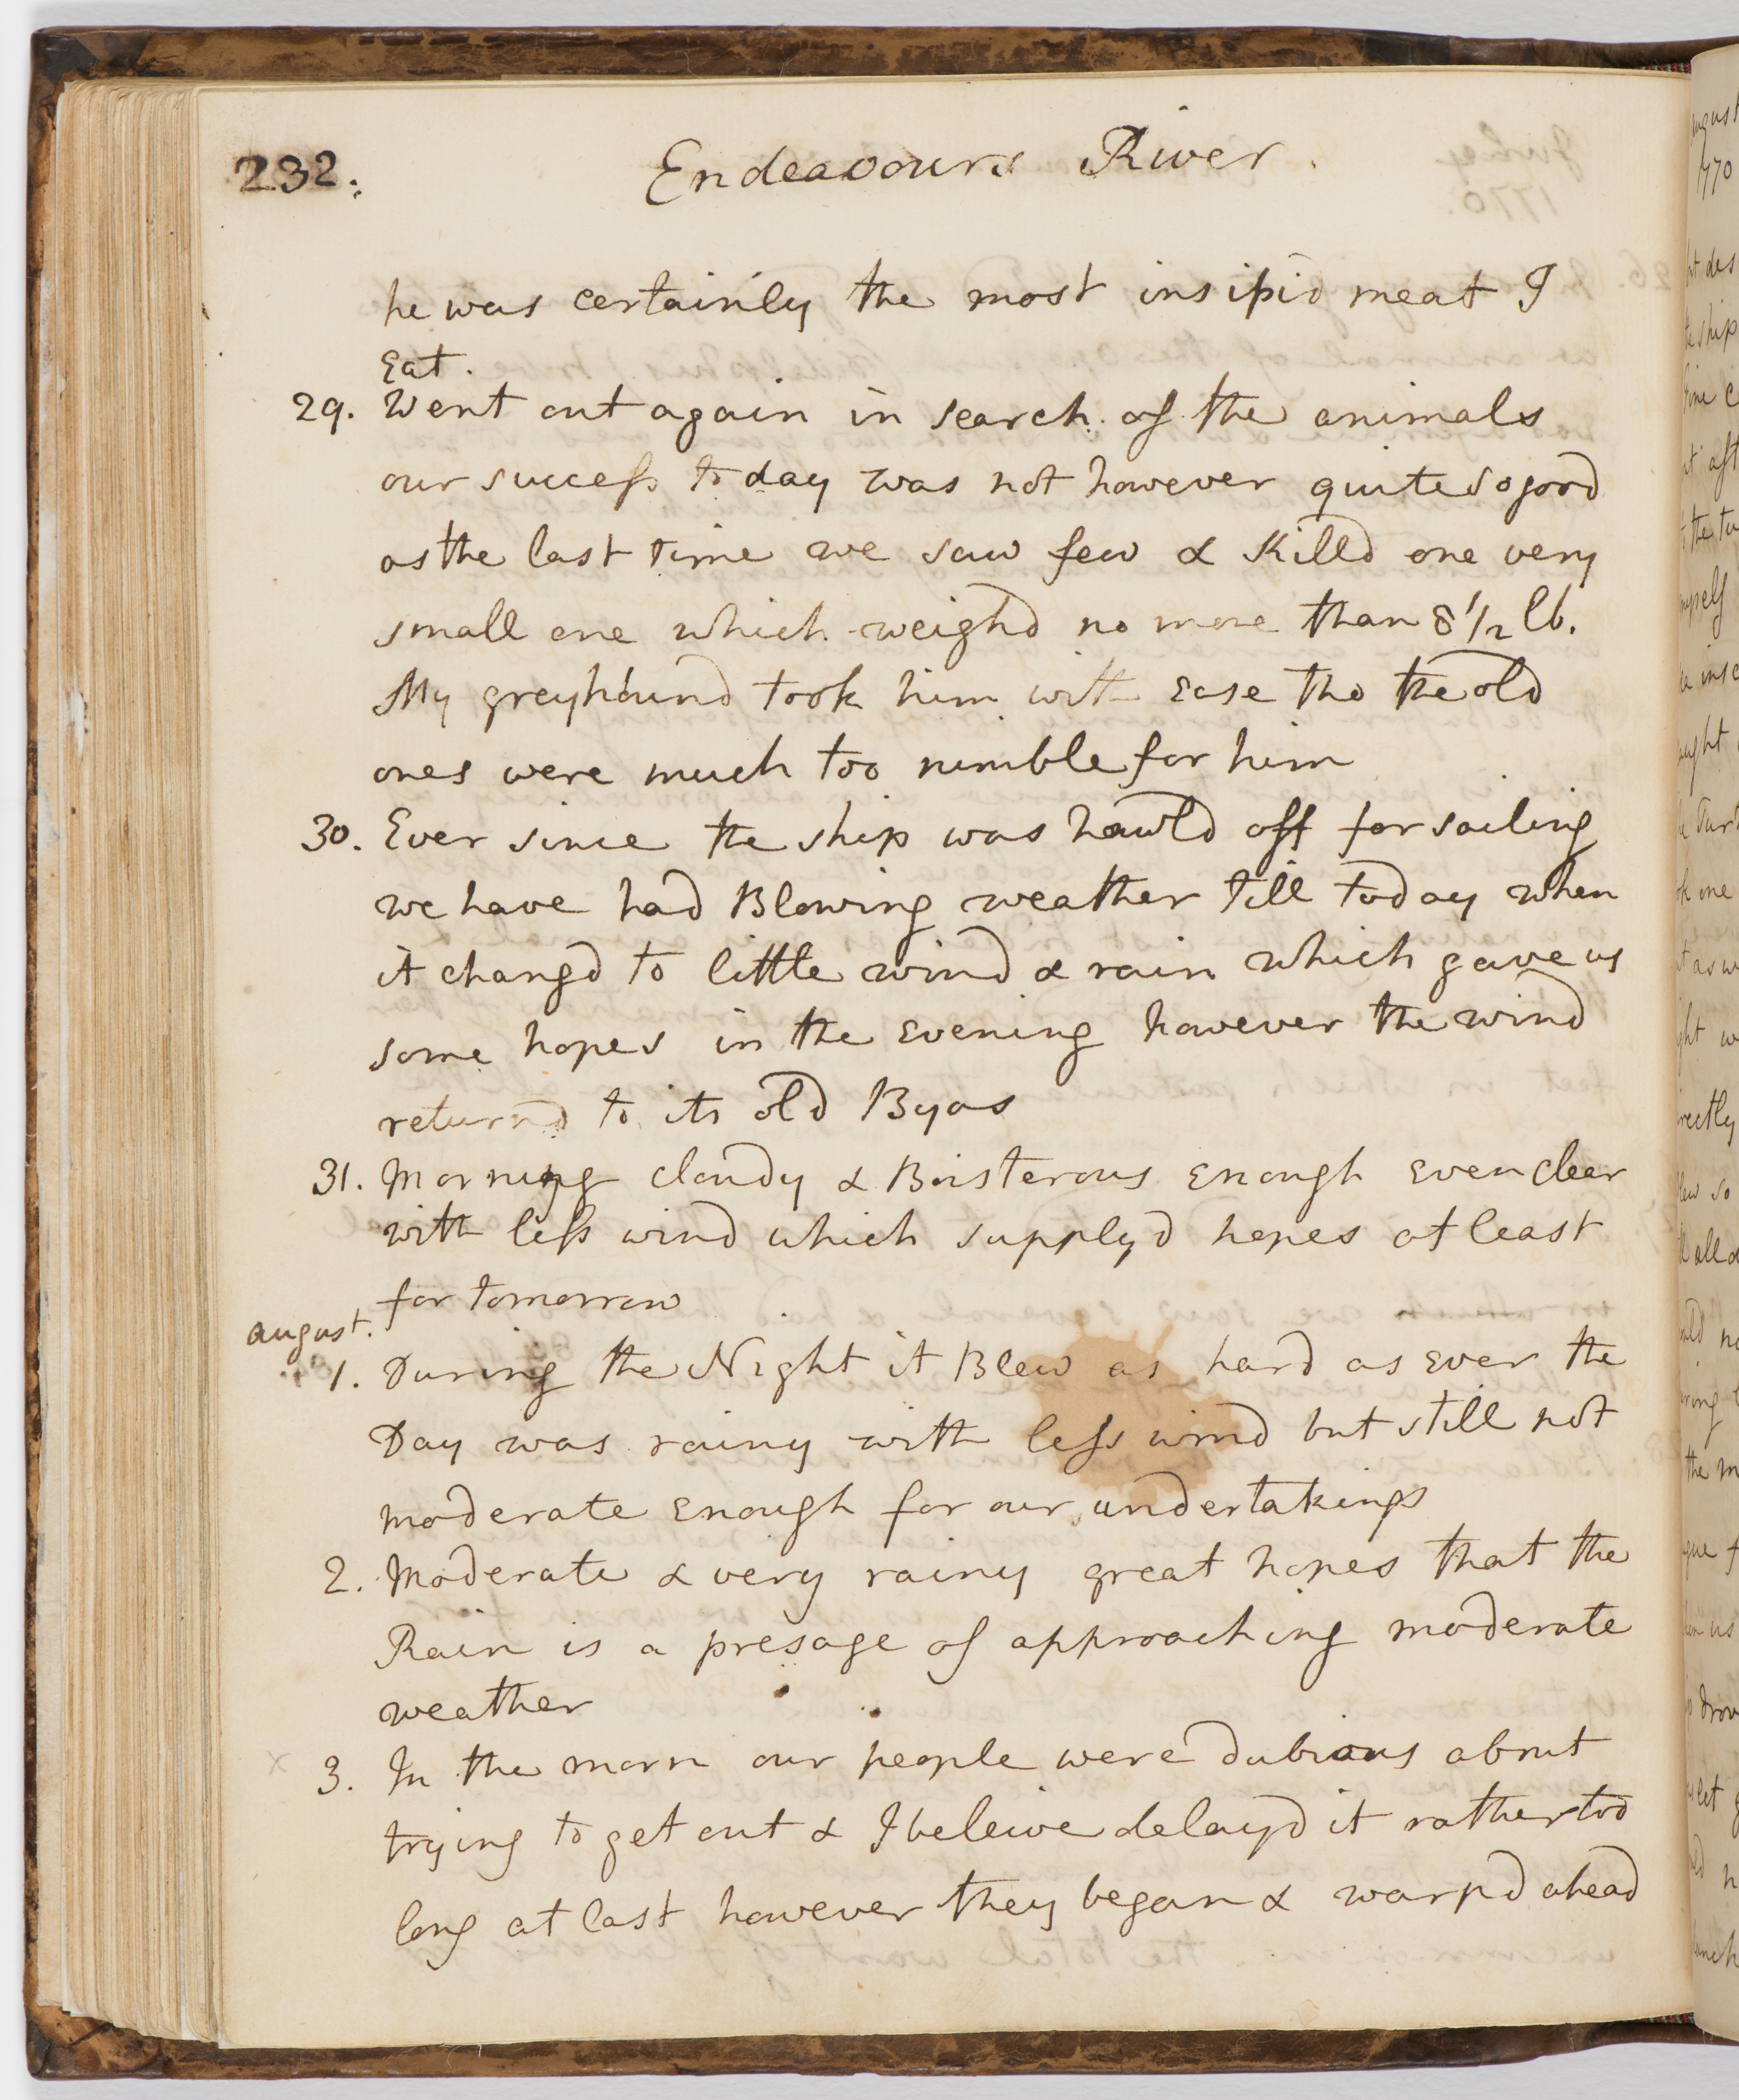 232.
Endeavours River.
he was certainly the most insipid meat I
Eat.
29. Went out again in search of the animals
our success to day was not however quite so good
as the last time we saw few & Killd one very
small one which weighd no more than 8 1/2 lb.
My greyhound took him with Ease tho the old
ones were much too nimble for him
30. Ever since the ship was hawld off for sailing
we have had Blowing weather till today when
it changd to little wind & rain which gave us
some hopes in the Evening however the wind
returnd to its old Byas
31. Morning cloudy & Boisterous Enough Even clear
with less wind which supplyd hopes at least
for tomorrow
august.
1. During the Night it Blew as hard as Ever the
Day was rainy with less wind but still not
moderate Enough for our undertakings
2. Moderate & very rainy great hopes that the
Rain is a presage of approaching moderate
weather
3. In the morn our people were dubious about
trying to get out & I beleive delayd it rather too
long at last however they began & warpd ahead